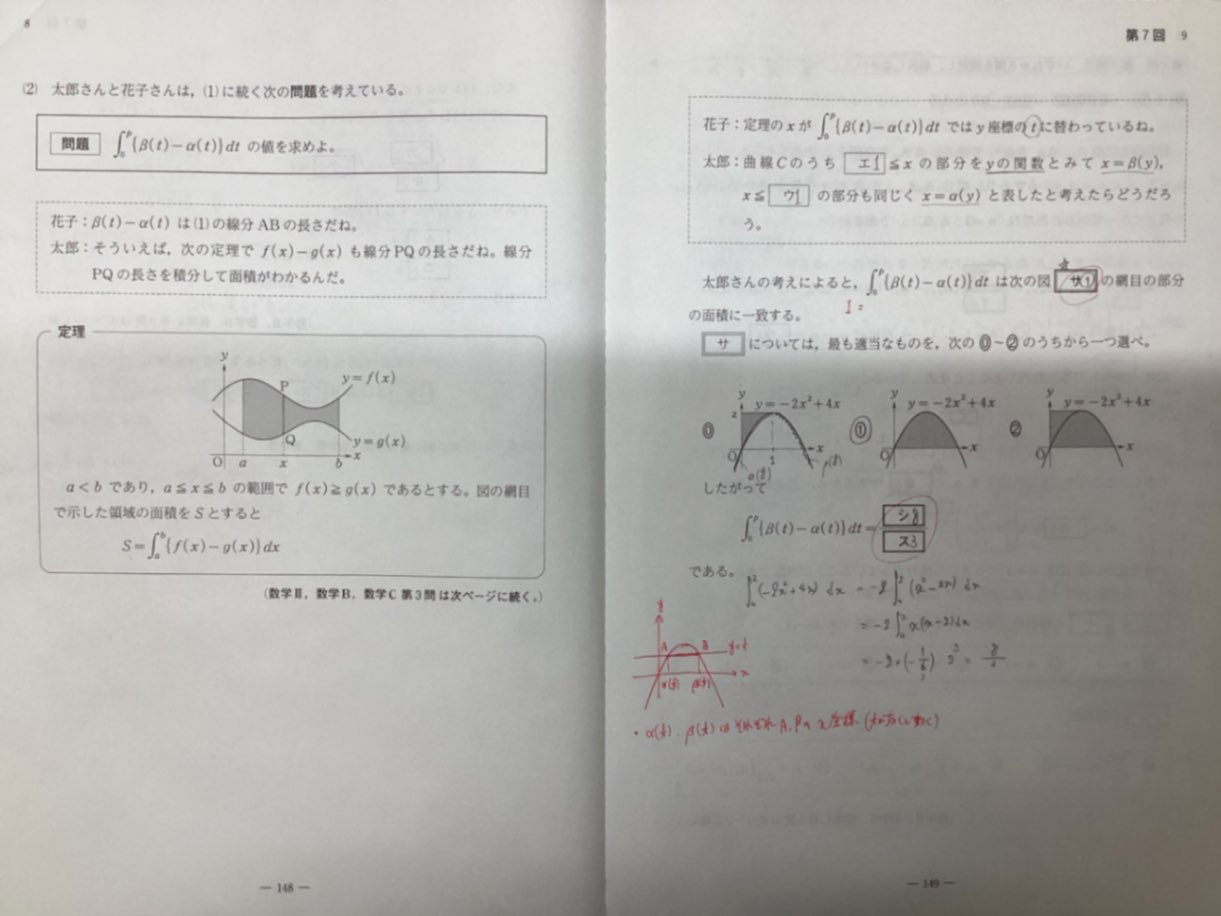 8
(2) 太郎さんと花子さんは，(1)に続く次の問題を考えている。
問題 ∫₀ᵖ{β(t)－α(t)}dt の値を求めよ。
花子：β(t)－α(t) は(1)の線分ABの長さだね。
太郎：そういえば，次の定理で f(x)－g(x) も線分PQの長さだね。線分
PQの長さを積分して面積がわかるんだ。
定理
y
P
y＝f(x)
Q
y＝g(x)
O a x b x
a＜b であり，a≦x≦b の範囲で f(x)≧g(x) であるとする。図の網目
で示した領域の面積をSとすると
S＝∫ₐᵇ{f(x)－g(x)}dx
(数学Ⅱ，数学B，数学C 第3問は次ページに続く。)
― 148 ―
第7回 9
花子：定理のxが ∫₀ᵖ{β(t)－α(t)}dt ではy座標のtに替わっているね。
太郎：曲線Cのうち エ1 ≦x の部分をyの関数とみて x＝β(y)，
x≦ ウ1 の部分も同じく x＝α(y) と表したと考えたらどうだろ
う。
太郎さんの考えによると，∫₀ᵖ{β(t)－α(t)}dt は次の図 サ1 の網目の部分
I =
の面積に一致する。
サ については，最も適当なものを，次の⓪～②のうちから一つ選べ。
⓪ y y＝－2x²＋4x 2 O 1 x
① y y＝－2x²＋4x O x
② y y＝－2x²＋4x O x
したがって
∫₀ᵖ{β(t)－α(t)}dt＝ シ8 / ス3
である。
∫₀²(-2x²+4x) dx = -2∫₀²(x²-2x) dx
= -2∫₀² x(x-2)dx
= -2×(-1/6) 2³ = 8/3
y
A B y=t
x
α(t) β(t)
・α(t), β(t)はそれぞれA, Bのx座標
― 149 ―